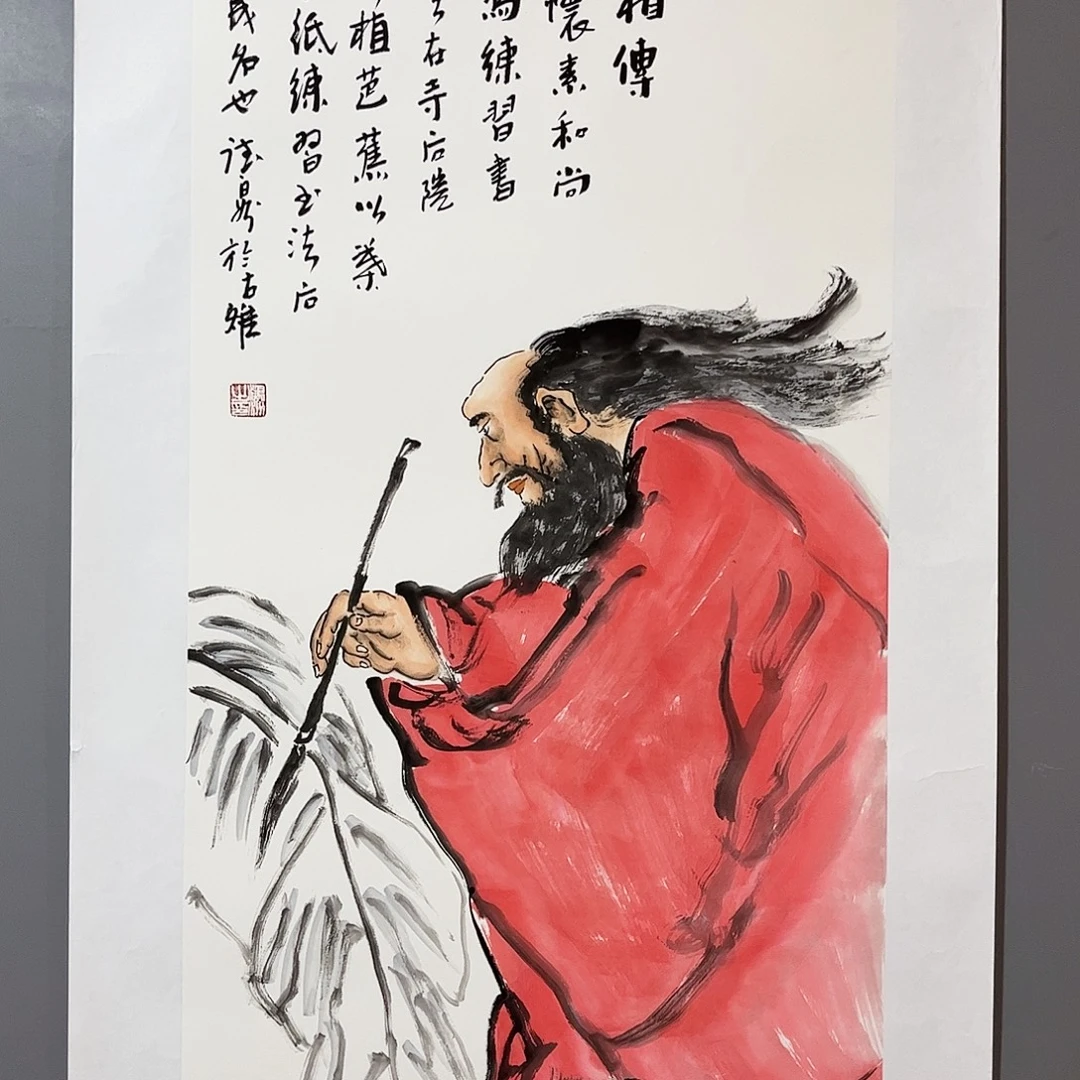 相傳
懷素和尚
為練習書
法在寺后院
植芭蕉以葉
紙練習书法后
成名也 於古雅